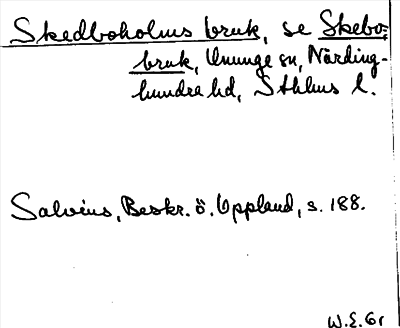 Skedboholms bruk, se Skebo-
bruk, Ununge sn, Närding-
hundra hd, Sthlms l.
Salvius, Beskr. ö. Uppland, s. 188.
W.E. Gr